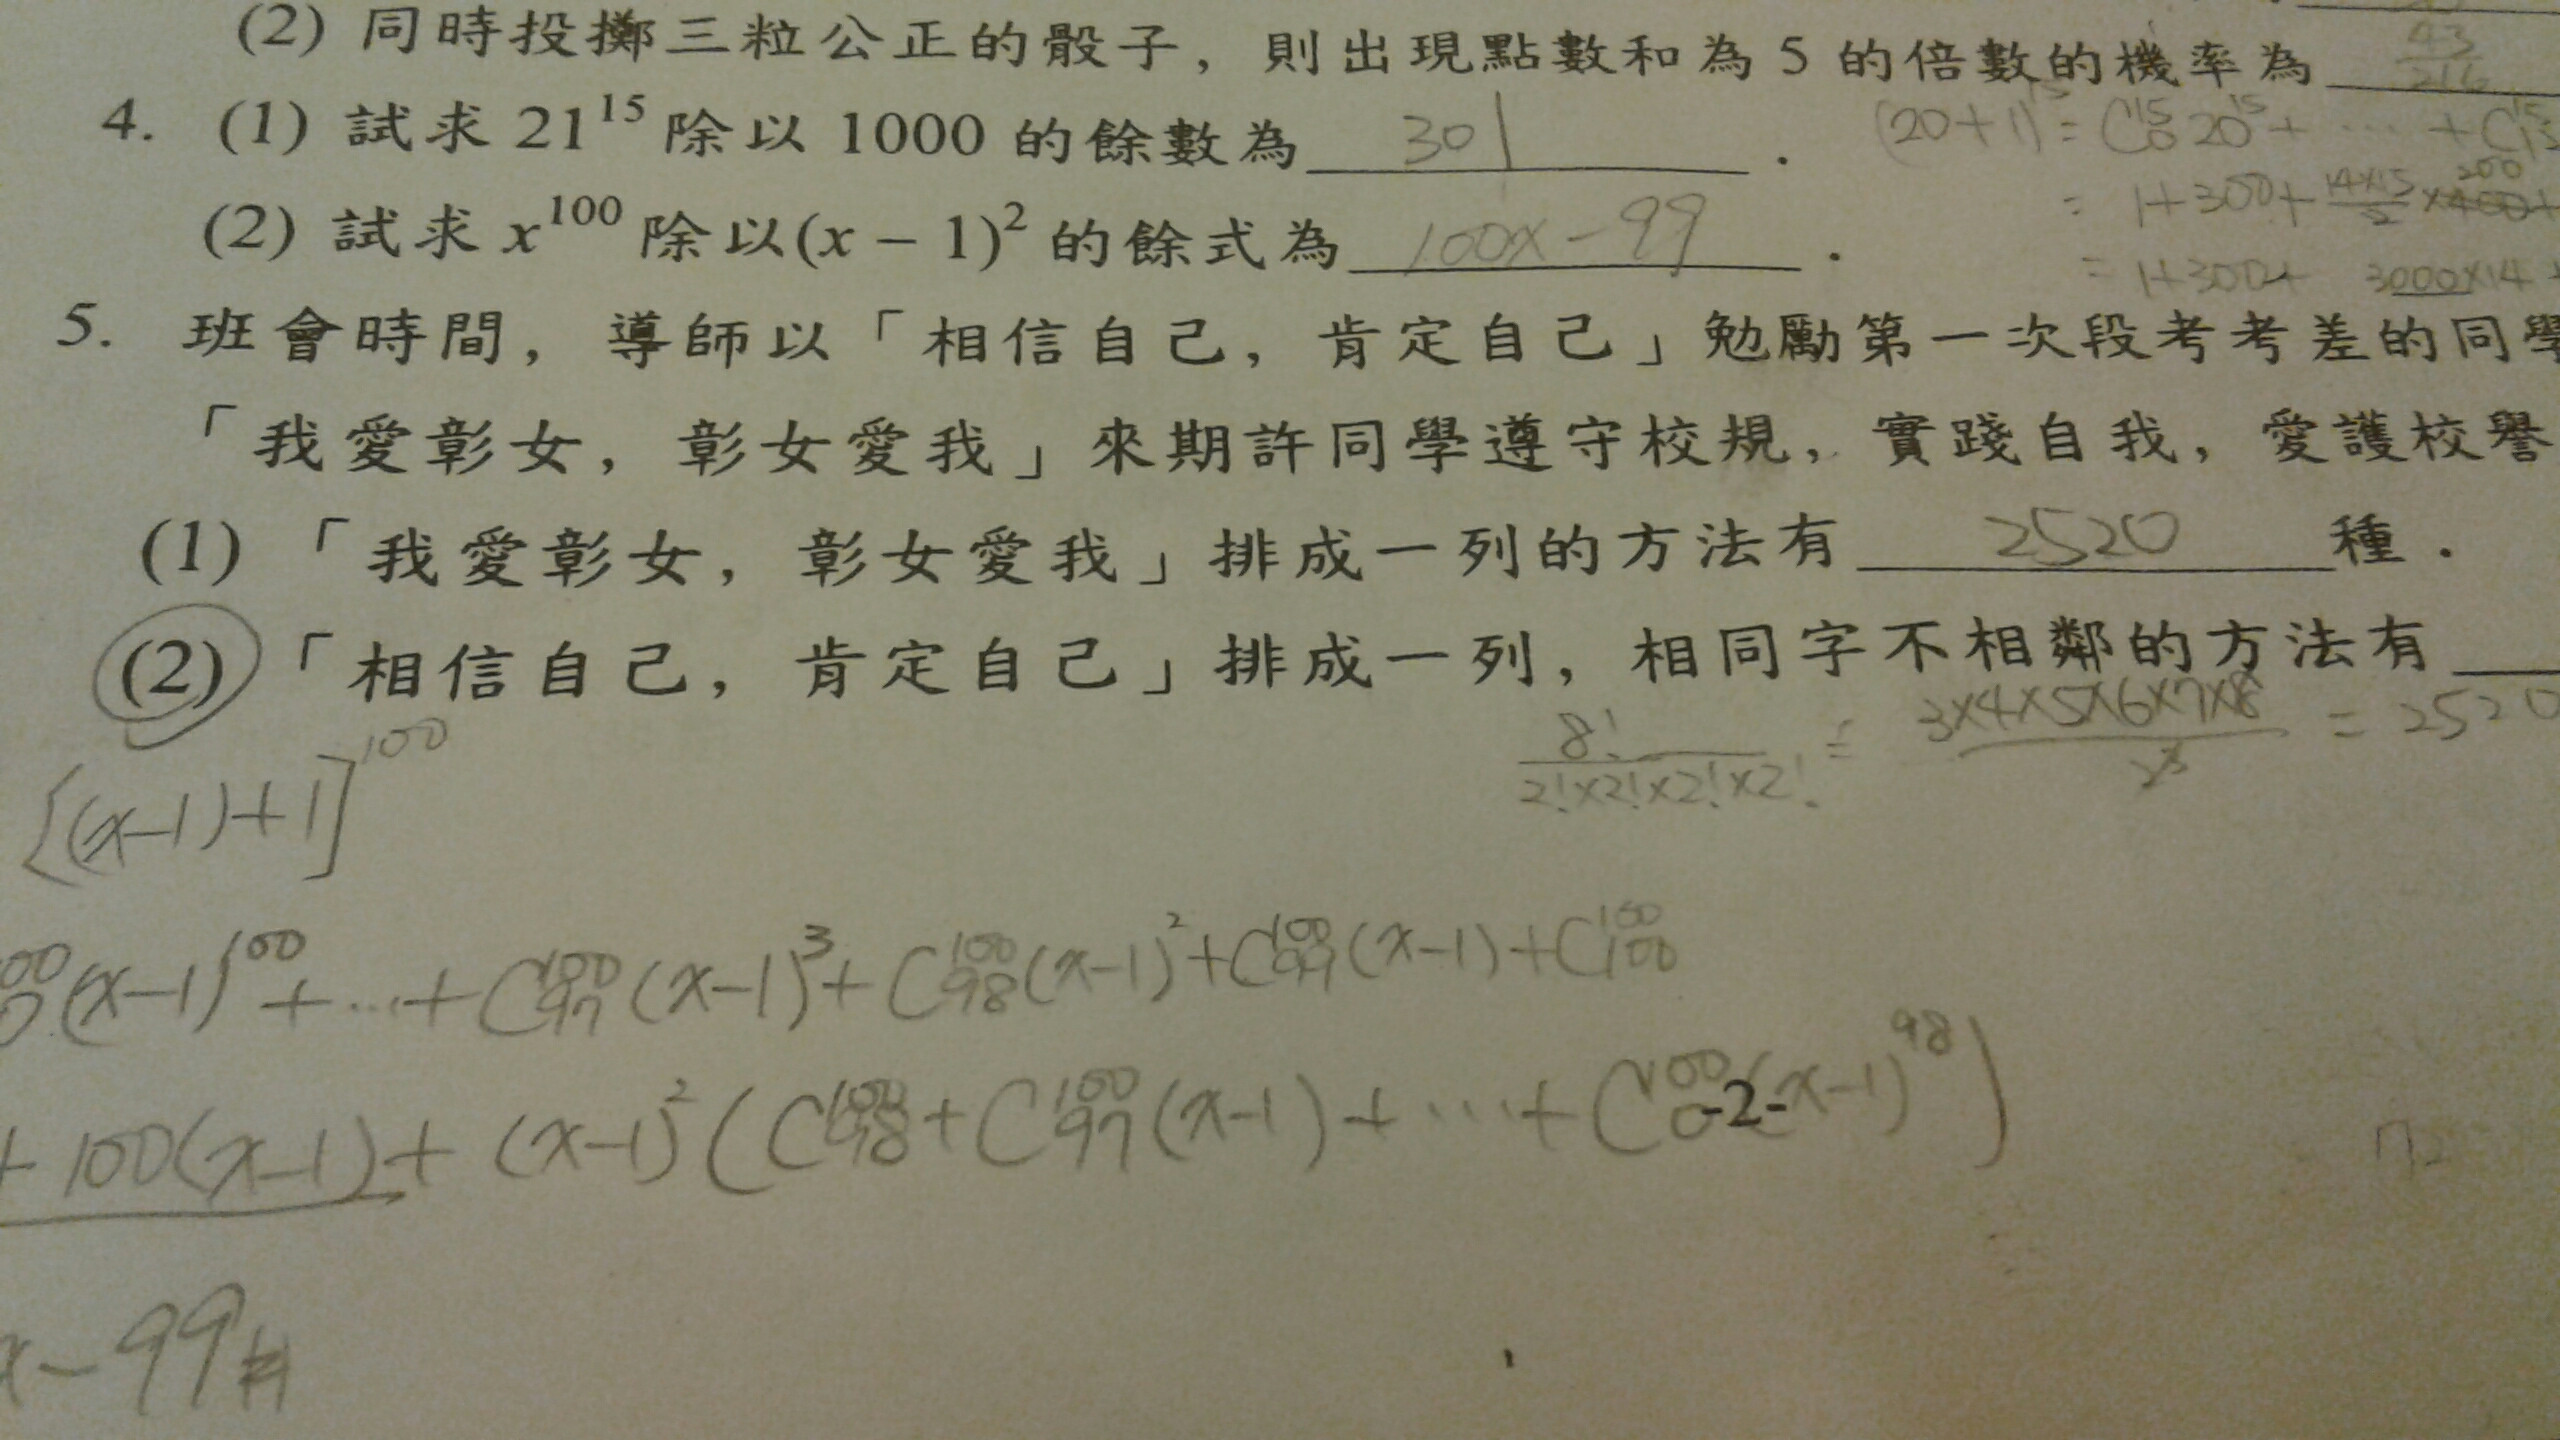 (2) 同時投擲三粒公正的骰子，則出現點數和為 5 的倍數的機率為 43/216
4. (1) 試求 21^15 除以 1000 的餘數為 301 .
(20+1)^15 = C^15_0 20^15 + ... + C^15_15
(2) 試求 x^100 除以(x − 1)^2 的餘式為 100x-99 .
= 1+300+ 14×15/2 ×400+
= 1+300+ 3000×14 +
5. 班會時間，導師以「相信自己，肯定自己」勉勵第一次段考考差的同學
「我愛彰女，彰女愛我」來期許同學遵守校規，實踐自我，愛護校譽
(1) 「我愛彰女，彰女愛我」排成一列的方法有 2520 種．
(2) 「相信自己，肯定自己」排成一列，相同字不相鄰的方法有
8!/2!×2!×2!×2! = 3×4×5×6×7×8/2^3 = 2520
[(x-1)+1]^100
(x-1)^100 + ... + C^100_97 (x-1)^3 + C^100_98 (x-1)^2 + C^100_99 (x-1) + C^100_100
+ 100(x-1) + (x-1)^2 (C^100_98 + C^100_97 (x-1) + ... + C^100_0 (x-1)^98)
-2-
x-99#